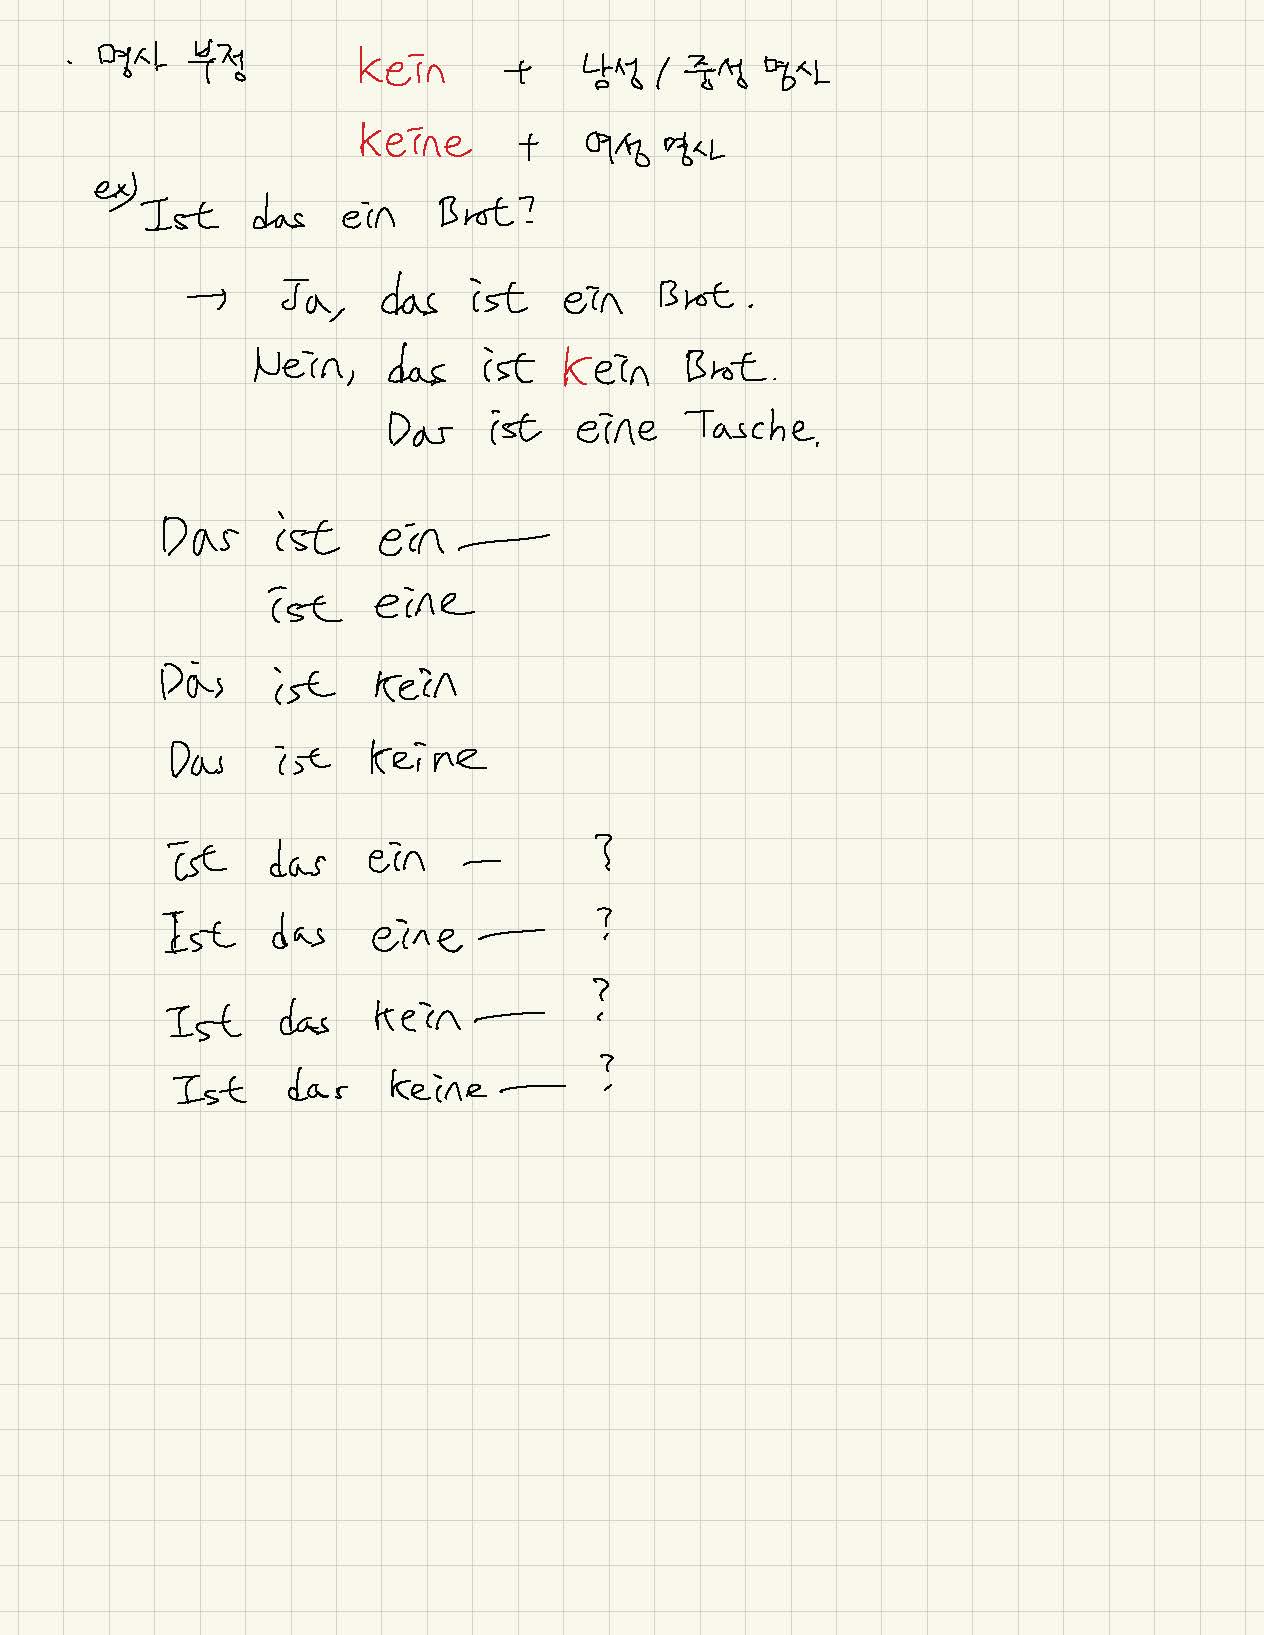 · 명사 부정 kein + 남성 / 중성 명사
keine + 여성 명사
ex) Ist das ein Brot?
→ Ja, das ist ein Brot.
Nein, das ist kein Brot.
Das ist eine Tasche.
Das ist ein —
ist eine
Das ist kein
Das ist keine
ist das ein — ?
Ist das eine — ?
Ist das kein — ?
Ist das keine — ?